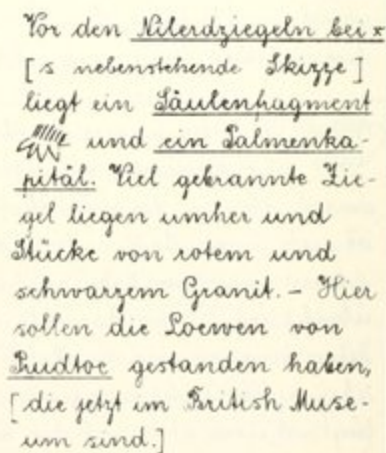 Vor den Nilerdziegeln bei x
[s nebenstehende Skizze]
liegt ein Säulenfragment
und ein Palmenka-
pitäl. Viel gebrannte Zie-
gel liegen umher und
Stücke von rotem und
schwarzem Granit. – Hier
sollen die Loewen von
Rudtoc gestanden haben,
[die jetzt im British Muse-
um sind.]